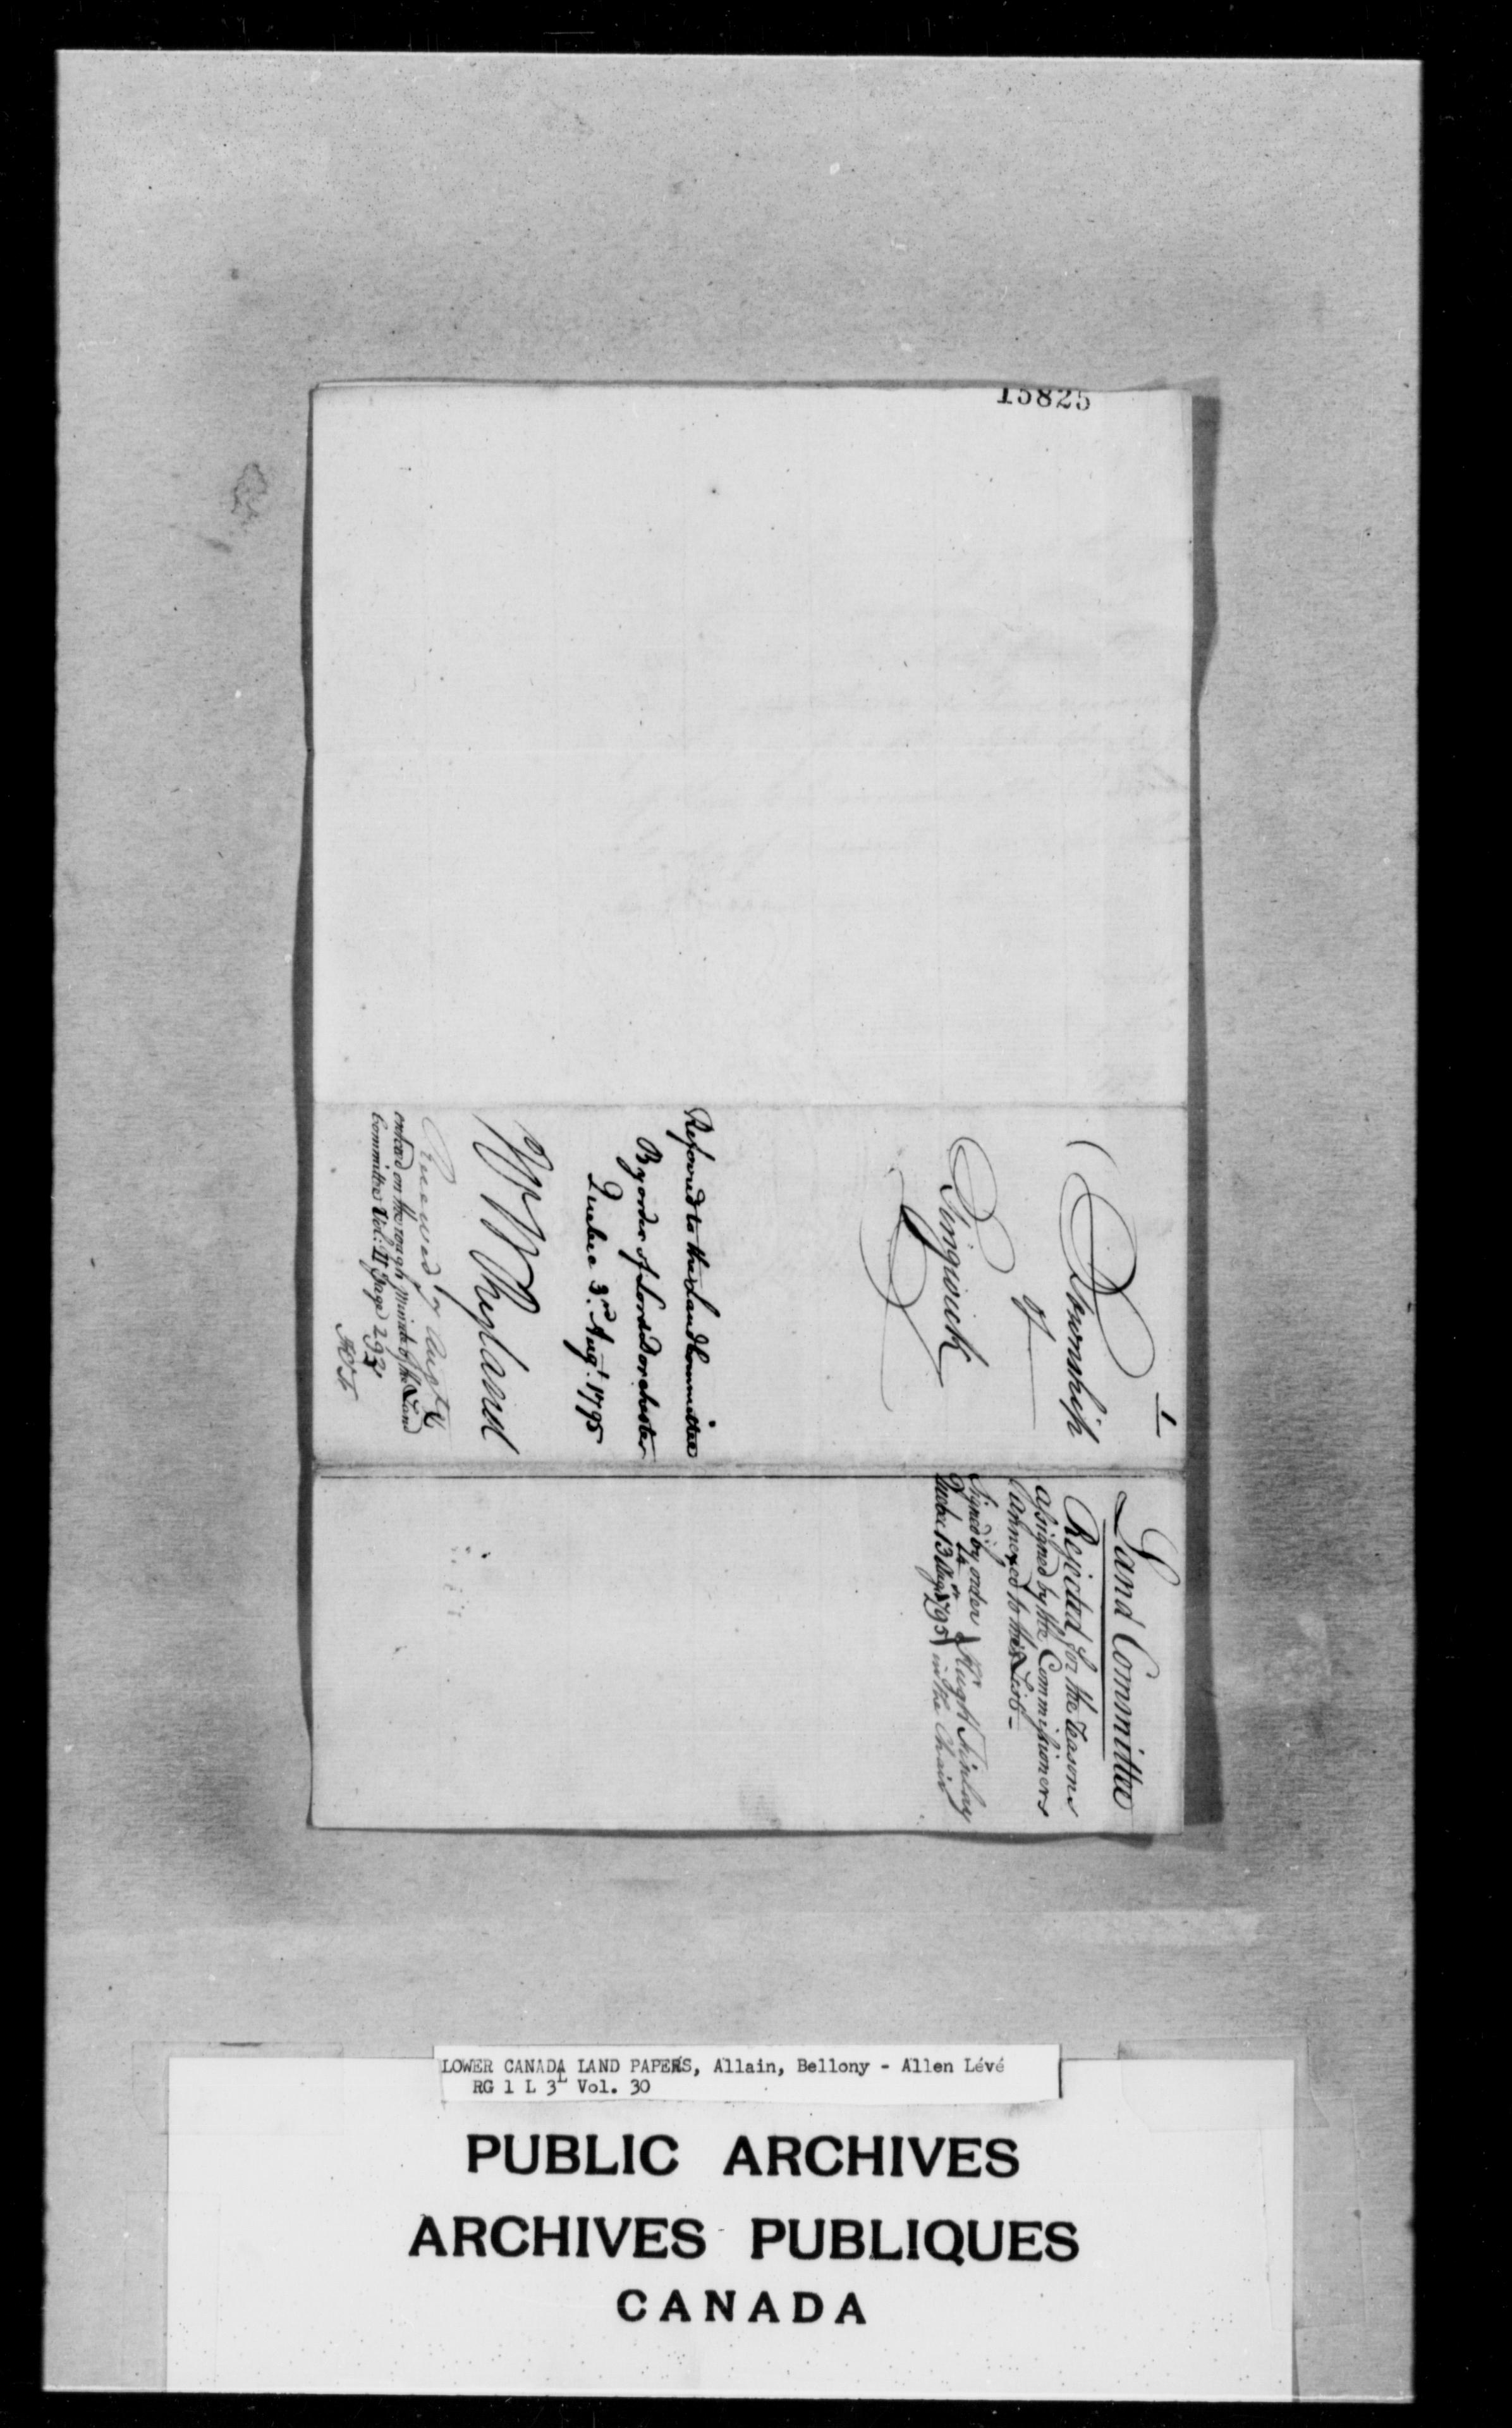 15825
1
Township
of
Tingwick
Referred to the Land Committee
By order of Lord Dorchester
Quebec 3.rd Aug.t 1795
H W Ryland
entered on the rough Minute of the Land
Committee Vol: II page 293
Land Committee
Rejected for the reasons
assigned by the Commissioners
annexed to their List -
Signed by order
Quebec 13 Aug 1795
Hugh Finlay
in the Chair
LOWER CANADA LAND PAPERS, Allain, Bellony - Allen Lévé
RG 1 L 3L Vol. 30
PUBLIC ARCHIVES
ARCHIVES PUBLIQUES
CANADA